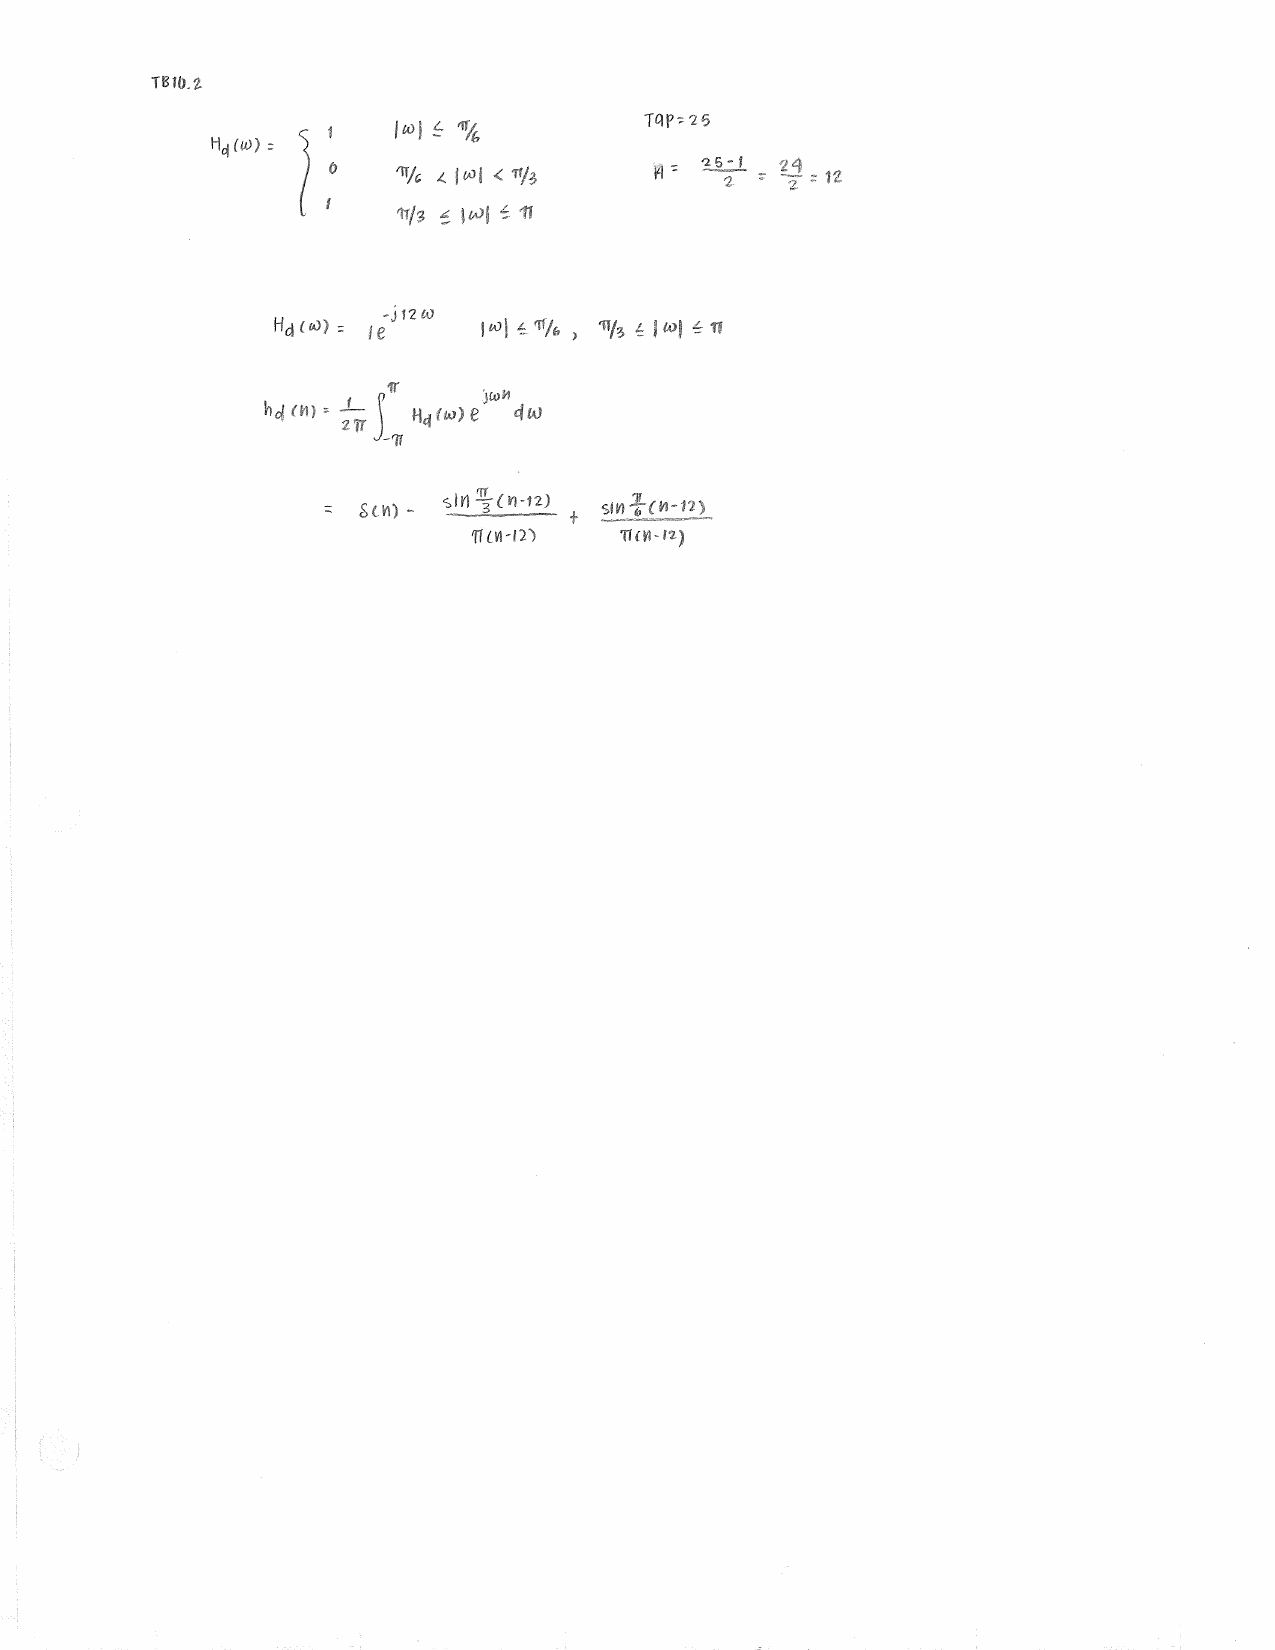 TB10.2
Hd(ω) = { 1 |ω| ≤ π/6 Tap = 25
0 π/6 < |ω| < π/3 = (25-1)/2 = 24/2 = 12
1 π/3 ≤ |ω| ≤ π
Hd(ω) = 1e^(-j12ω) |ω| ≤ π/6 , π/3 ≤ |ω| ≤ π
hd(n) = 1/(2π) ∫_{-π}^{π} Hd(ω) e^(jωn) dω
= δ(n) - sin π/3 (n-12) / π(n-12) + sin π/6 (n-12) / π(n-12)